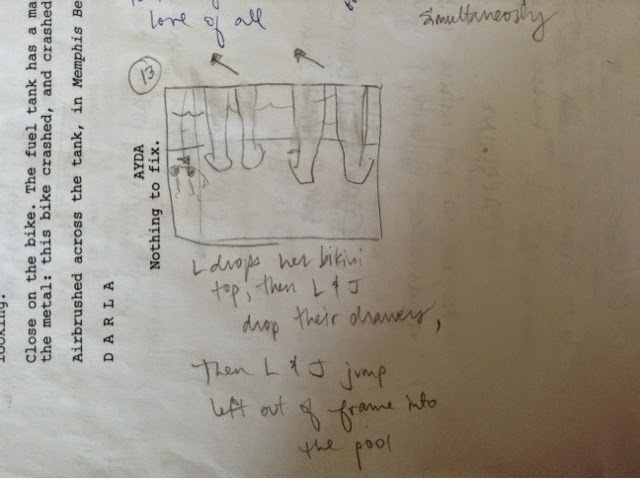 love of all
simultaneosly
13
L drops her bikini
top, then L & J
drop their drawers,
then L & J jump
left out of frame into
the pool
looking.
Close on the bike. The fuel tank has a ma
the metal: this bike crashed, and crashed
Airbrushed across the tank, in Memphis Be
D A R L A
AYDA
Nothing to fix.